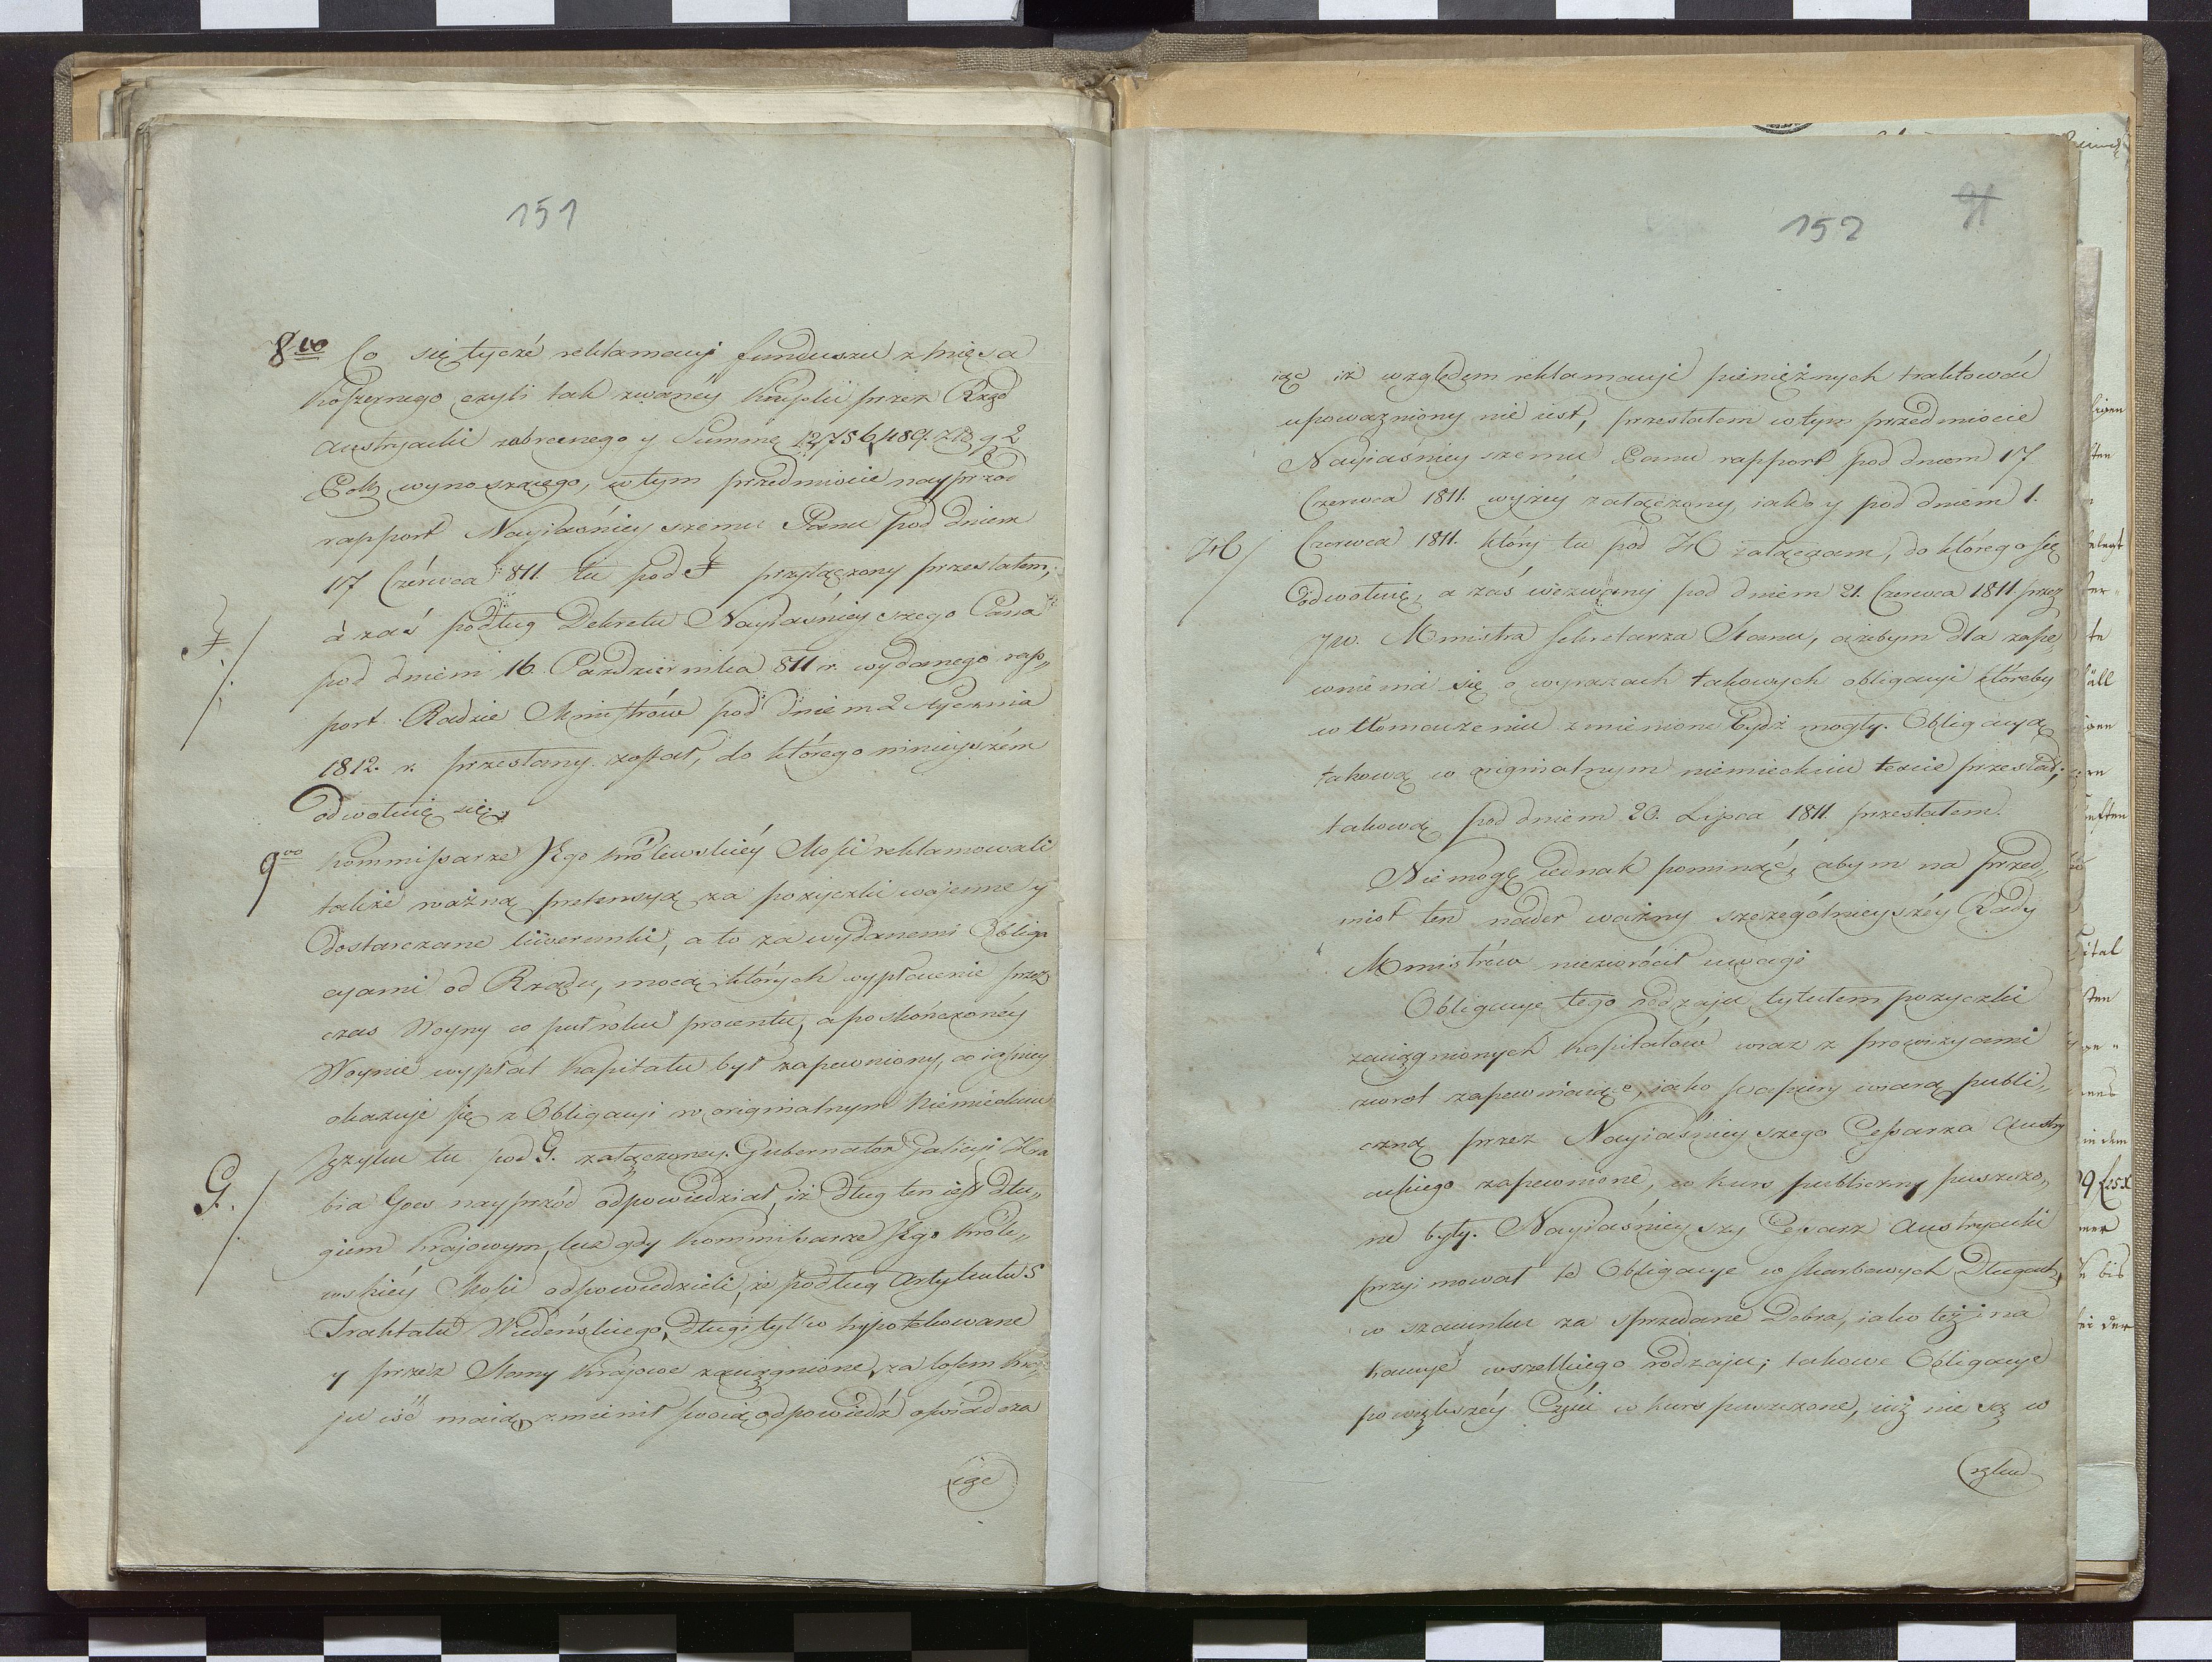 151
8vo Co się tycze reklamacyi funduszu z mięsa
koszernego czyli tak zwanéy Krupki przez Rząd
austryacki zabranego y Summę 12,756,489. Złp g 2
Polk wynoszącego, w tym przedmiocie nayprzód
rapport Nayiaśnieyszemu Panu pod dniem
17 Czérwca 811. tu pod F przyłączony przesłałem,
F./.
à zaś podług Dekretu Nayiaśnieyszego Pana
pod dniem 16. Pazdziernika 811 r. wydanego rap„
port Radzie Ministrów pod dniem 2 Stycznia
1812. r. przesłany został, do którego ninieyszém
odwołuię się.
9no Kommissarze JKgo Królewskiéy Mości reklamowali
także ważną pretensyą za pożyczki wojenne y
Dostarczane liwerunki, a to za wydanemi Obliga
cyami od Rządu, mocą których wypłacenie przez
czas Woyny co puł roku procentu, a po skończonéy
Woynie wypłat Kapitału był zapewniony, co iaśniey
okazuje się z Obligacyi w originalnym Niemieckim
Języku tu pod G. załączoney. Gubernator Galicyi Hra
G./.
bia Goes nayprzód odpowiedział, iż dług ten iest dłu„
giem Krajowym, lecz gdy Kommissarze JKgo Króle„
wskiéy Mości odpowiedzieli, że podług Artykułu 5
Traktatu Wiedeńskiego, długi tylko hypotekowane
y przez Stany Krajowe zaciągnione, za losem Kra„
ju iść maią, zmienił swoią odpowiedź oświadcza
iąc
152
91
iąc iż względem reklamacyi pieniężnych traktować
upoważniony nie iest, przesłałem w tym przedmiocie
Nayiaśnieyszemu Panu rapport pod dniem 17
Czerwca 1811. wyżéy załączony, iako y pod dniem 1.
H/
Czerwca 1811. który tu pod H załączam, do którego się
odwołuię, a zaś wezwany pod dniem 21. Czerwca 1811. przez
JW. Ministra Sekretarza Stanu, ażebym dla zape„
wnienia się o wyrazach takowych obligacyi któreby
w tłomaczeniu zmienione bydź mogły. Obligacyą
takową w originalnym niemieckim texcie przesłał;
takową pod dniem 20. Lipca 1811. przesłałem.
Nie mogę iednak pominąć, abym na przed„
miot ten nader ważny szczególnieyszéy Rady
Ministrów nie zwrócił uwagi
Obligacye tego rodzaju tytułem pożyczki
zaciągnionych Kapitałów wraz z prowizyami
zwrot zapewniaiące, iako papiery wiarą publi„
czną przez Nayiaśnieyszego Cesarza Austry
ackiego zapewnione, w kurs publiczny puszczo„
ne były. Nayiaśnieyszy Cesarz Austryacki
przyimował te Obligacye w skarbowych Długach,
w szacunku za sprzedane Dobra, iako też i na
kaucye wszelkiego rodzaju; takowe Obligacye
po większéy Części w kurs puszczone, iuż nie są w
ręku